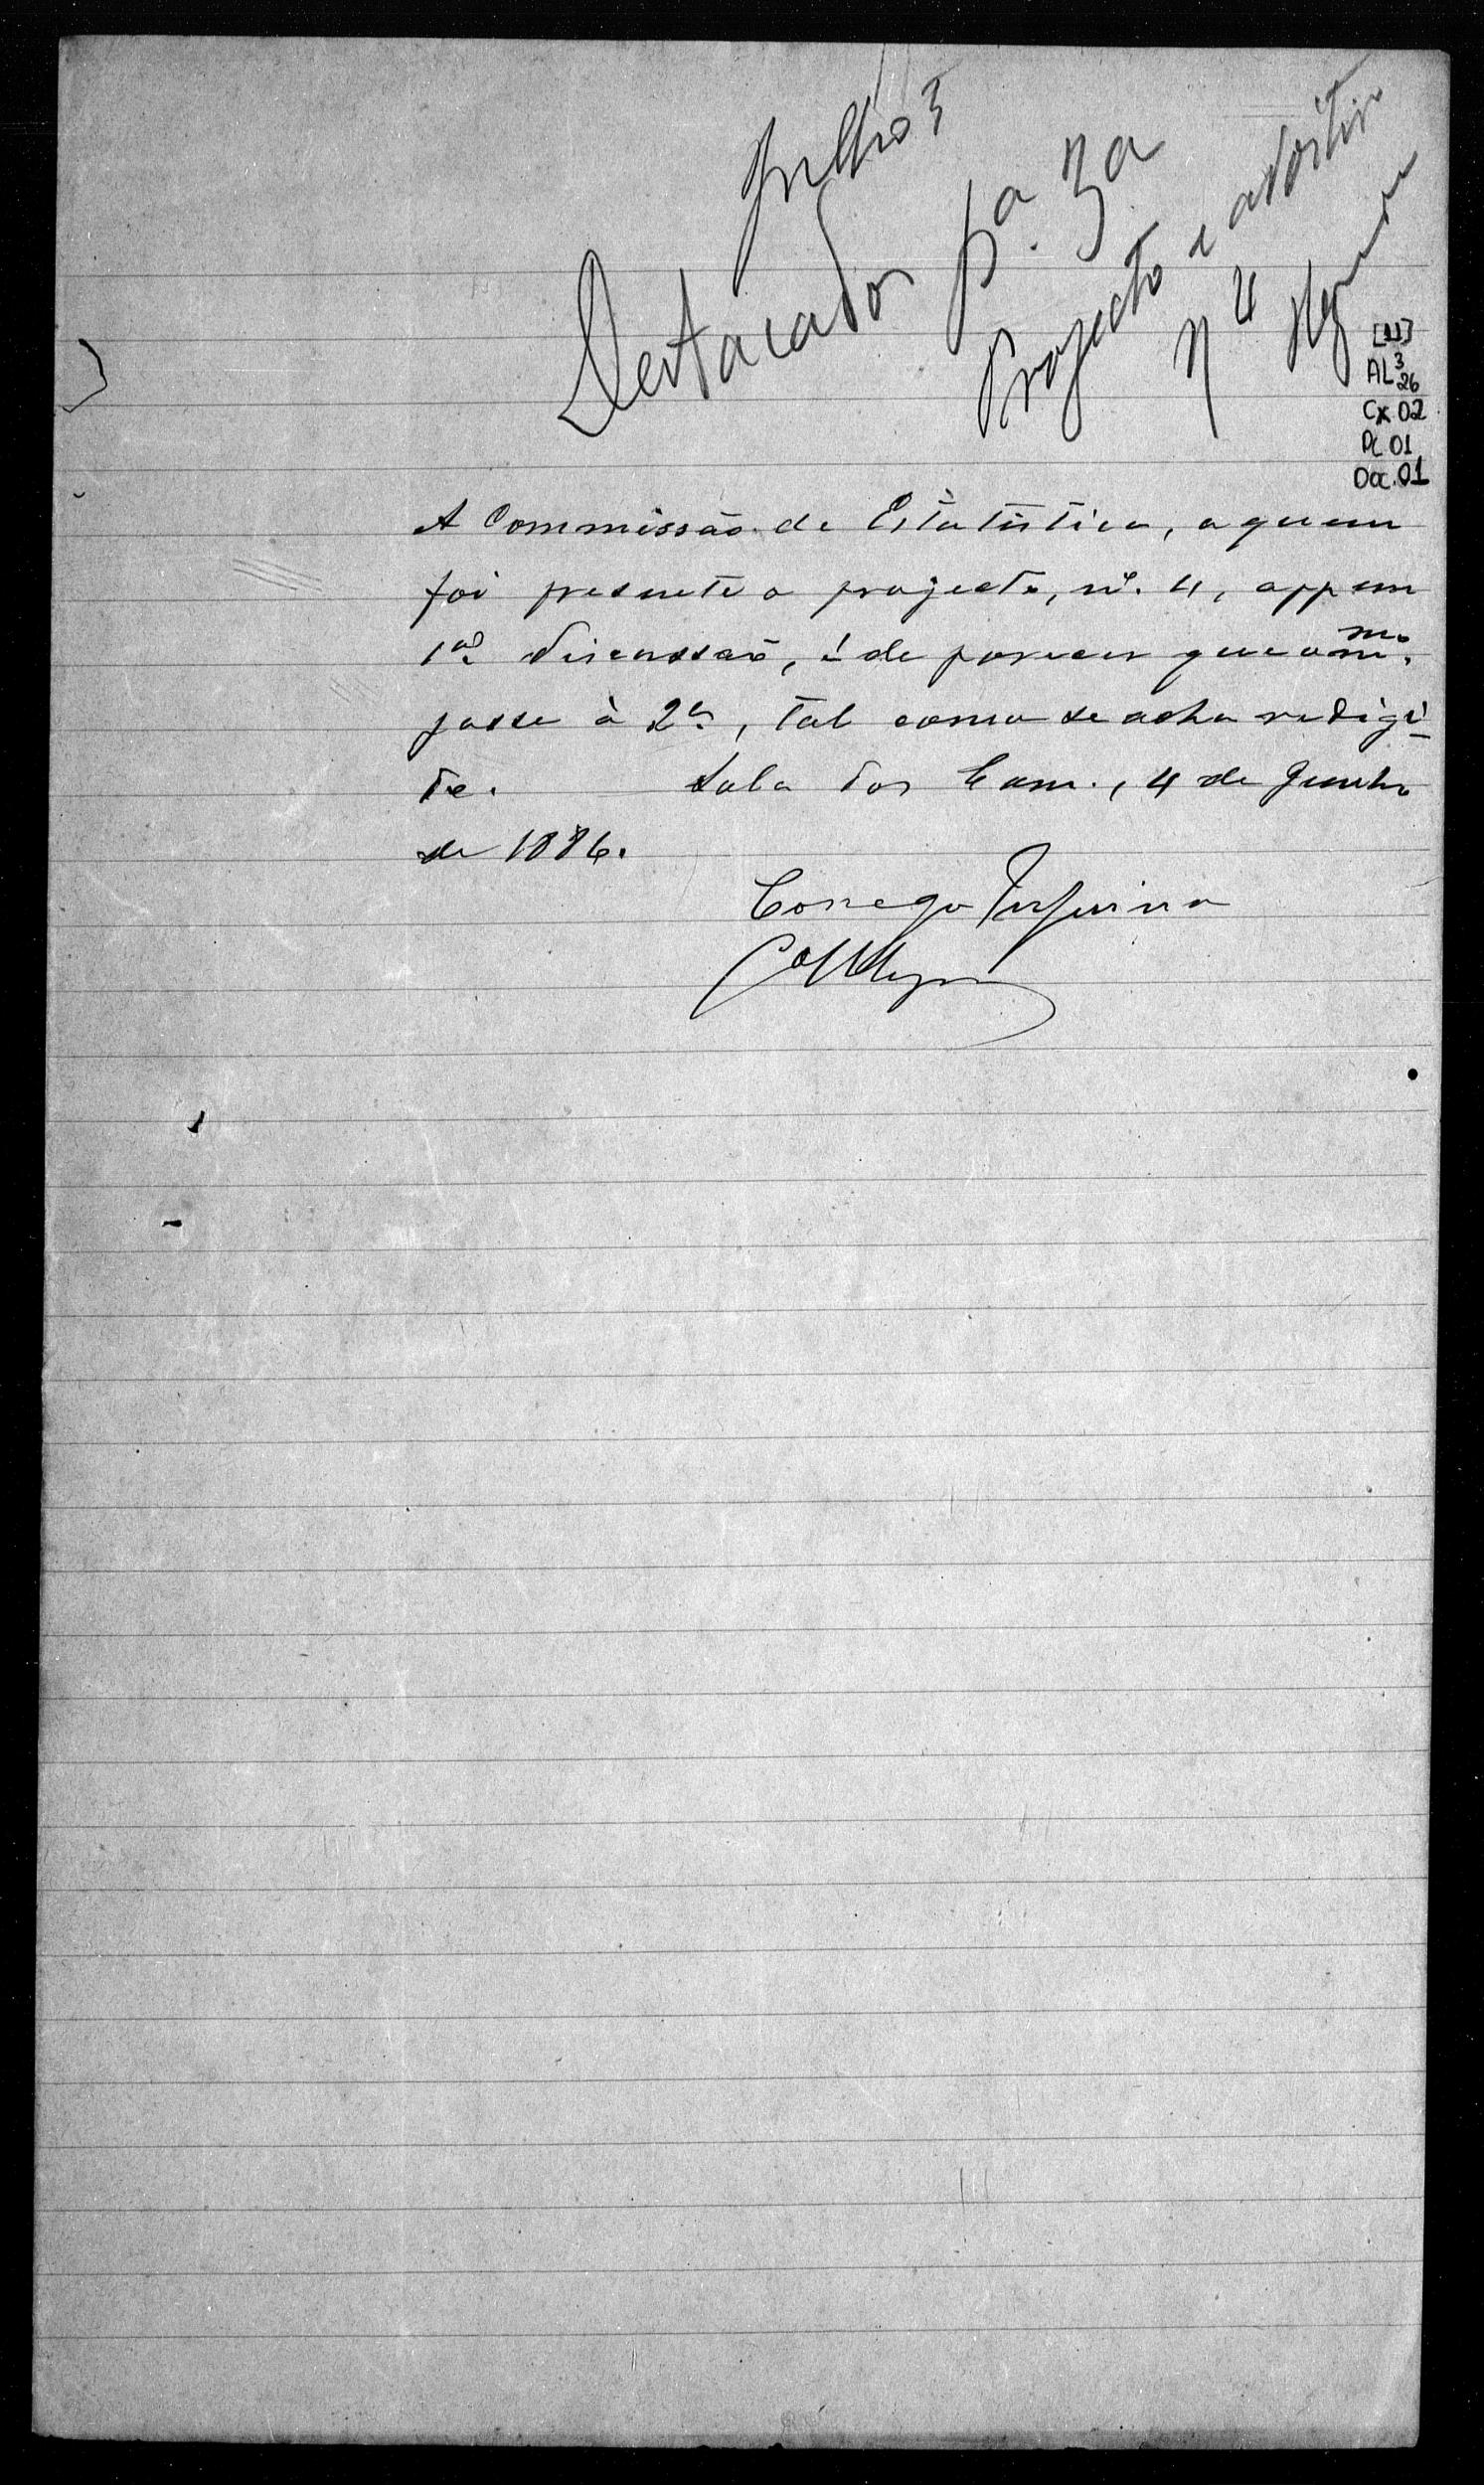 Julho 3
Destacados pª. 3ª
Projecto e
nº 4
[11]
AL³26
Cx 02
Pc 01
Doc. 01
A Commissão de Estatistica, a quem
foi presente o projecto, nº. 4, app em
1ª discussão, é de parecer que o mmo.
passe à 2ª, tal como se acha redigi
do. Sala das Comm., 4 de Junho
de 1886.
Conego